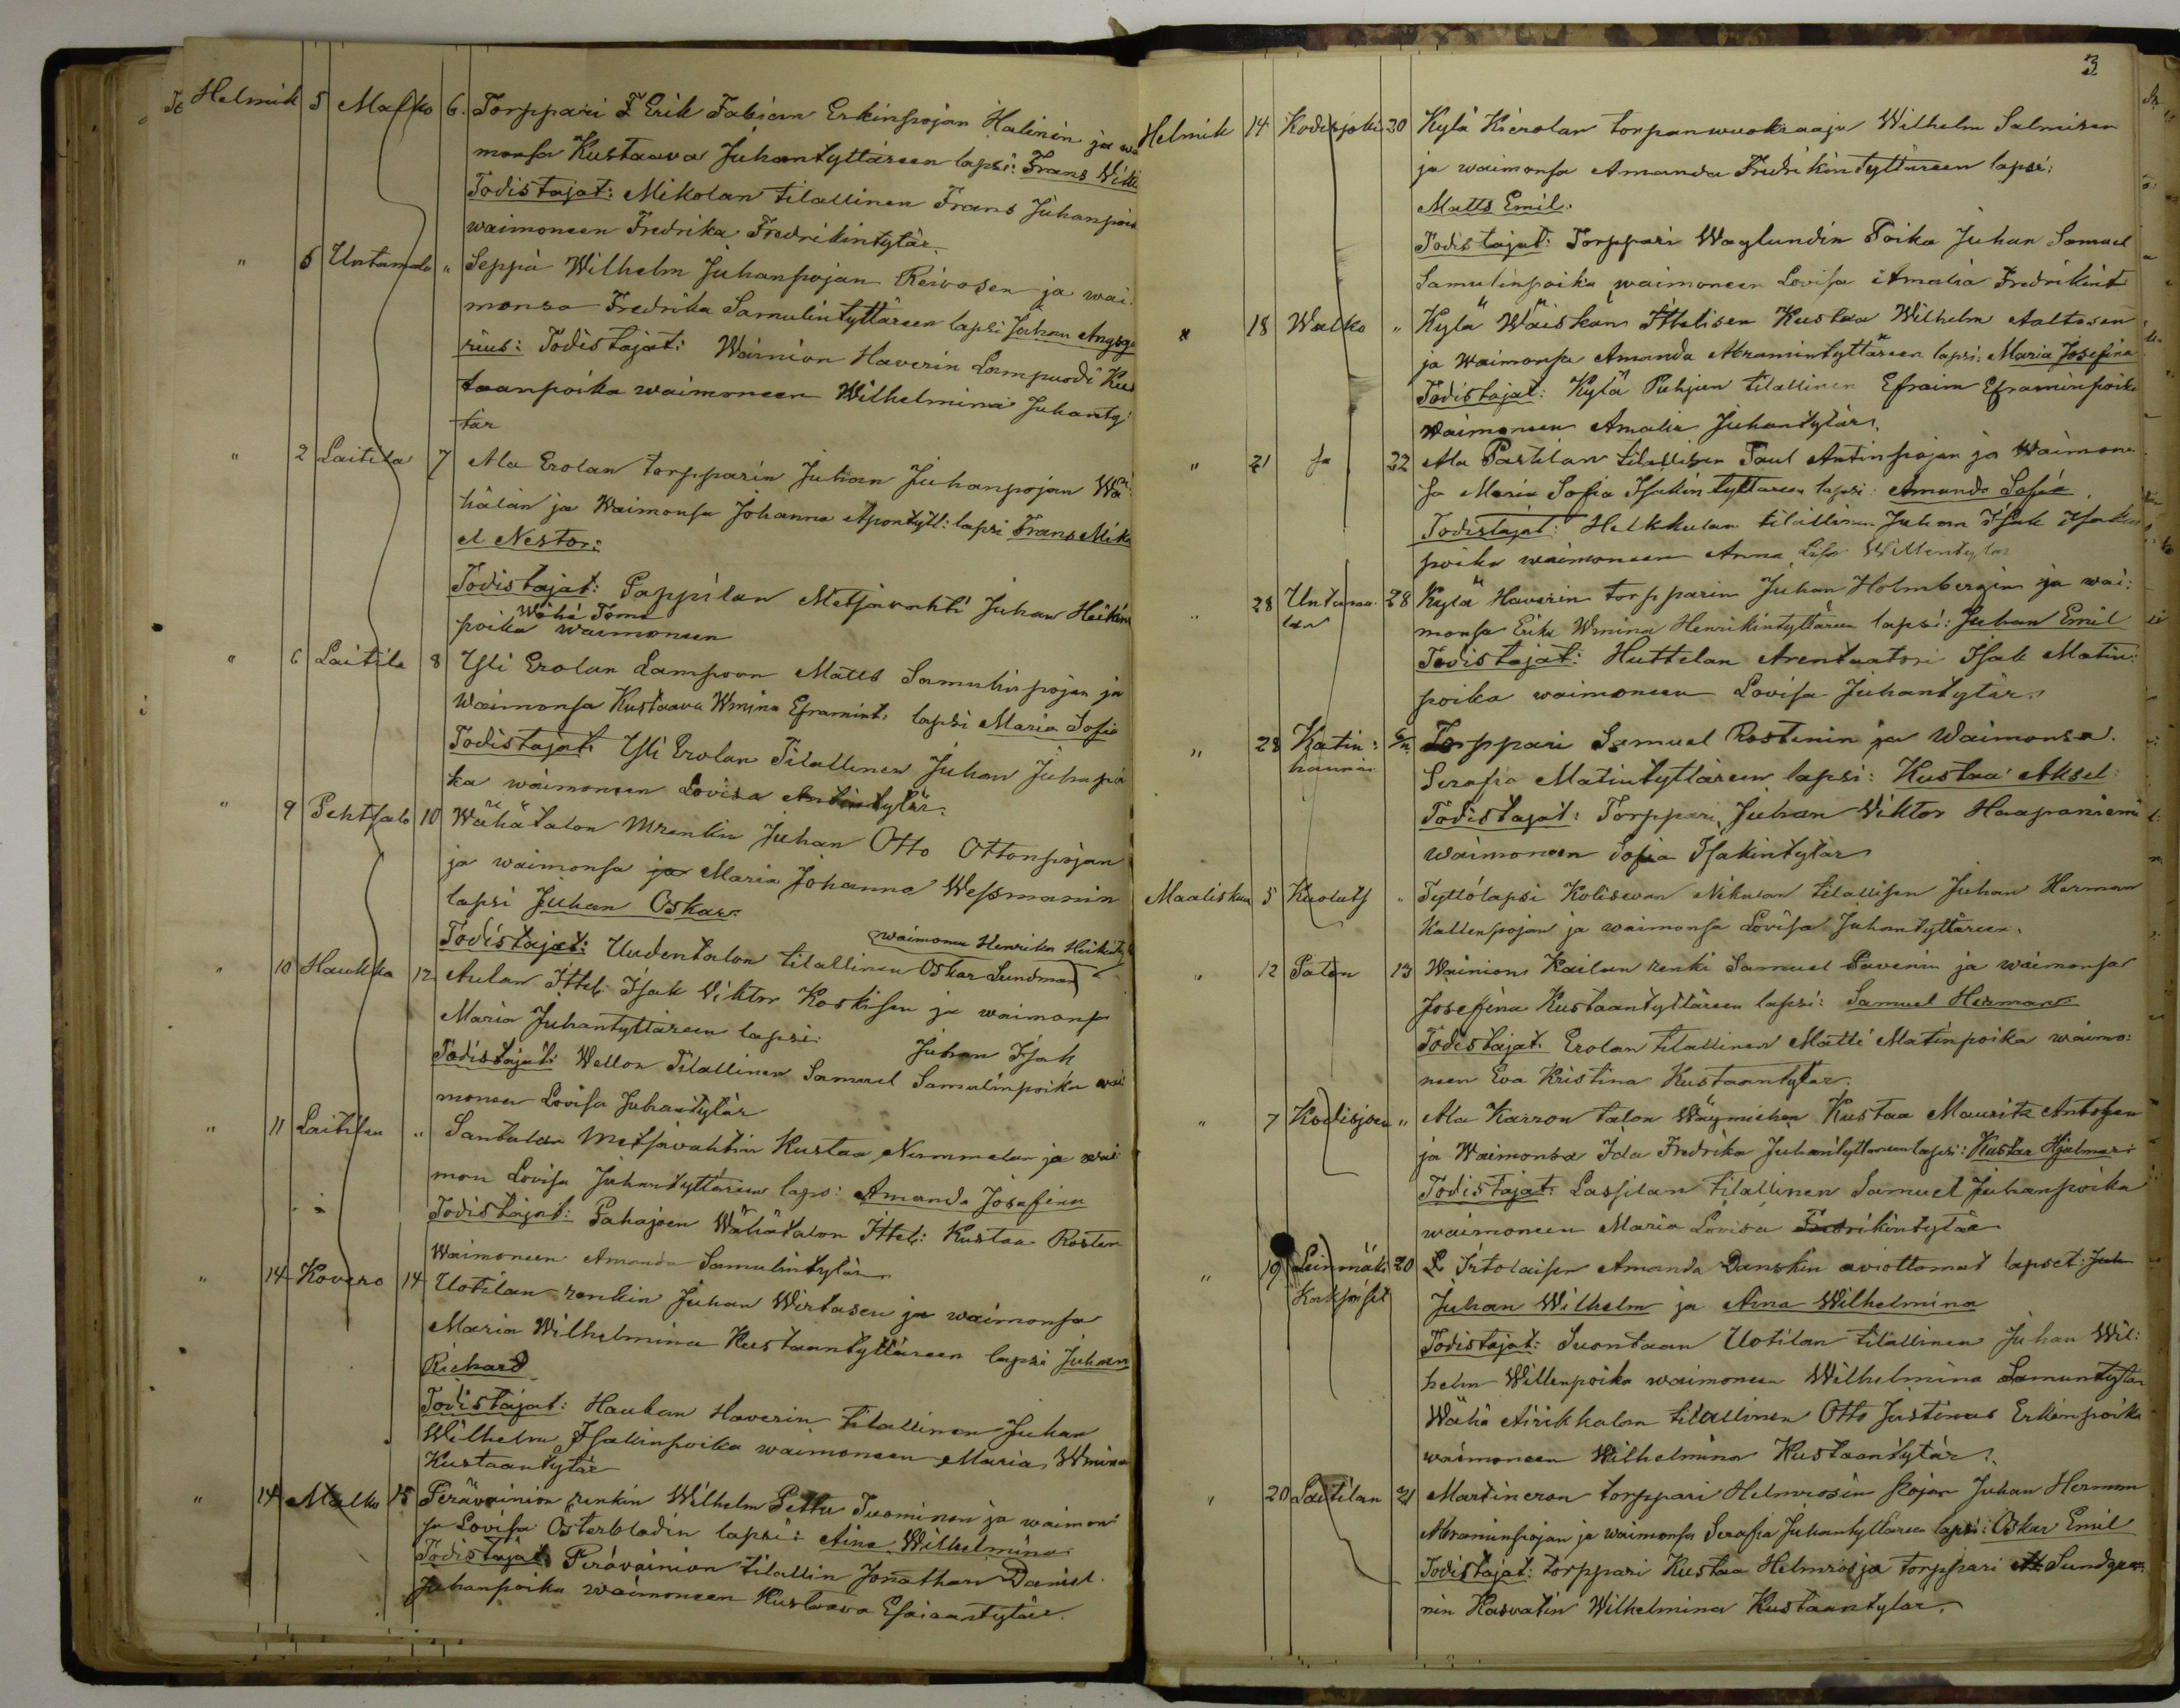 Helmik 5 Malko 6. Torppari F Erik Fabian Erkinpojan Halinin ja wai
monsa Kustaava Juhantyttäreen lapsi: Frans Wikt
Todistajat: Mikolan tilallinen Frans Juhanpoik
waimoneen Fredrika Fredrikintytär
" 6 Untamala " Seppä Wilhelm Juhanpojan Reivosen ja wai:
monsa Fredrika Samulintyttäreen lapsi Juhan
rius: Todistajat: Wäinion Haverin Lampuodi Kus
taanpoika waimoneen Wilhelmina Juhanty:
tär
" 2 Laitila 7 Ala Erolan torpparin Juhan Juhanpojan Wä
hälän ja Waimonsa Johanna Apontytt: lapsi Frans Mika
el Nestor:
Todistajat: Pappilan Metsävahti Juhan Heikin
poika Wähä Toma waimoneen
" 6 Laitila 8 Yli Erolan Lampoon Matts Samulinpojan ja
Waimonsa Kustaava Wmina Eframint: lapsi Maria Sofia
Todistajat: Yli Erolan Tilallinen Juhan Juhapoi
ka waimoneen Lovisa Antintytär.
" 9 Pehtsalo 10 Wähätalon Mrenkin Juhan Otto Ottonpojan
ja waimonsa ja Maria Johanna Wessmanin
lapsi Juhan Oskar
waimoneen Henrika Heikinty
Todistajat: Uudentalon tilallinen Oskar Sundman
" 10 Haukka 12 Aulan Ittel: Isak Viktor Koskisen ja waimonsa
Maria Juhantyttäreen lapsi: Juhan Isak
Todistajat: Wellon Tilallinen Samuel Samulinpoika wai
moneen Lovisa Juhantytär
" 11 Laitilan " Santalan Metsävahtin Kustaa Nummelan ja wai
mon Lovisa Juhantyttäreen laps: Amanda Josefina
Todistajat: Pahajoen Wähätalon Ittel: Kustaa Rosten
Waimoneen Amanda Samulintytär
" 14 Kovero 14 Uotilan renkin Juhan Wirtasen ja waimonsa
Maria Wilhelmina Kustaantyttäreen lapsi Juhan
Richard
Todistajat: Haukan Haverin tilallinen Juhan
Wilhelm Isakinpoika waimoneen Maria Wmina
Kustaantytär
" 14 Malko 15 Perävainion renkin Wilhelm Pettu Tuominen ja waimon
sa Lovisa Österbladin lapsi: Aina Wilhelmina
Todistajat: Perävainion tilallin Jonathan Daniel
Juhanpoika waimoneen Kustaava Esaiaantytär.
3
Helmik 14 Kodisjoki 20 Kylä Kierolan torpanwuokraaja Wilhelm Salmisen
ja waimonsa Amanda Fredrikintyttäreen lapsi:
Matts Emil.
Todistajat: Torppari Waglundin Poika Juhan Samuel
Samulinpoika waimoneen Lovisa Amalia Fredrikint
" 18 Walko " Kylä Wäiskan Itthelisen Kustaa Wilhelm Aaltosen
ja Waimonsa Amanda Abramintyttäreen lapsi: Maria Josefina
Todistajat: Kylä Puhjun tilallinen Efraim Eframinpoika
waimoneen Amalia Juhantytär.
" 21 sa 22 Ala Partilan tilallisen Paul Antinpojan ja Waimon
sa Maria Sofia Isakintyttäreen lapsi: Amanda Sofia
Todistajat: Helkkulan tilallinen Juhan Isak Isakin
poika waimoneen Anna Lisa Willentytär
" 28 Untama lan 28 Kylä Haverin torpparin Juhan Holmbergin ja wai:
monsa Erika Wmina Henrikintyttäreen lapsi: Juhan Emil
Todistajat: Huttelan Arentaatori Isak Matin:
poika waimoneen Lovisa Juhantytär.
" 28 Katin: hannän Torppari Samuel Rostenin ja Waimonsa
Serafia Matintyttäreen lapsi: Kustaa Aksel
Todistajat: Torppari Juhan Viktor Haapaniemi
waimoneen Sofia Isakintytär
Maaliskuu 5 Kuoluts " Tyttölapsi Koliseван Nikulan tilallisen Juhan Herman
Kallenpojan ja waimonsa Lovisa Juhantyttäreen.
" 12 Saton 13 Wäinion Kailan renki Samuel Pavenin ja waimonsa
Josefina Kustaantyttäreen lapsi: Samuel Herman
Todistajat. Erolan tilallinen Matti Matinpoika waimo:
neen Eva Kristina Kustaantytär.
" 7 Kodisjoen " Ala Karron talon Wäymiehen Kustaa Maurits Antosen
ja Waimonsa Ida Fredrika Juhantyttäreen lapsi: Kustaa Hjalmari
Todistajat: Lassilan tilallinen Samuel Juhanpoika
waimoneen Maria Lovisa Fredrikintytär
" 19 Leinmäki 20 L Irtolaisen Amanda Danskin aviottomat lapset: Juh
Juhan Wilhelm ja Aina Wilhelmina
Todistajat: Suontaan Uotilan tilallinen Juhan Wil:
helm Willenpoika waimoneen Wilhelmina Samuntytär
Wähä Airikkalan tilallinen Otto Justinus Erkinpoika
waimoneen Wilhelmina Kustaantytär.
" 20 Laitilan 21 Martineron torppari Helmrosin pojan Juhan Herman
Abraminpojan ja waimonsa Serafia Juhantyttäreen lapsi: Oskar Emil
Todistajat: torppari Kustaa Helmros ja torppari At Sundgre:
nin Kasvatin Wilhelmina Kustaantytar.